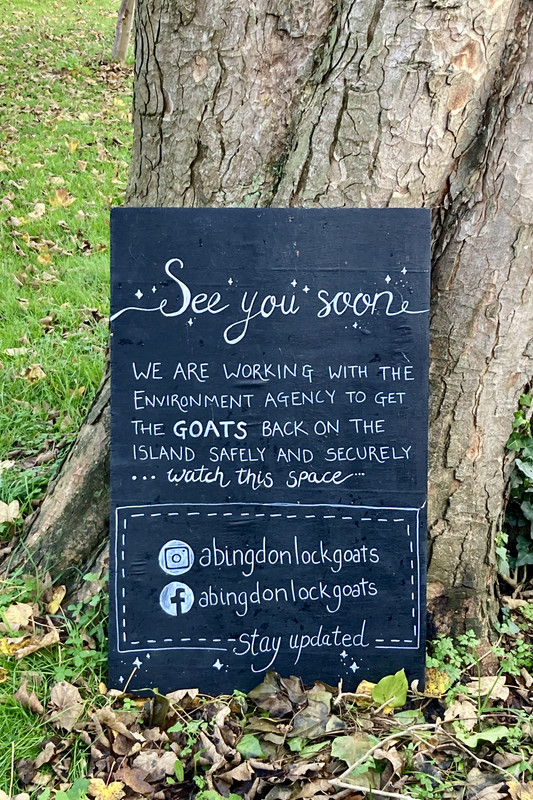 See you soon
WE ARE WORKING WITH THE
ENVIRONMENT AGENCY TO GET
THE GOATS BACK ON THE
ISLAND SAFELY AND SECURELY
... watch this space ...
abingdonlockgoats
abingdonlockgoats
stay updated